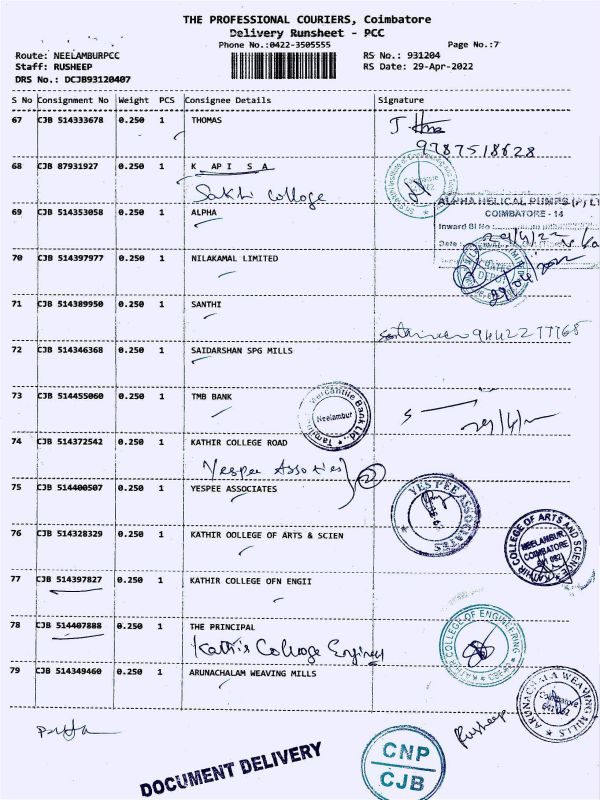 THE PROFESSIONAL COURIERS, Coimbatore
Delivery Runsheet - PCC
Phone No.:0422-3505555
Page No.:7
Route: NEELAMBURPCC
RS No.: 931204
Staff: RUSHEEP
RS Date: 29-Apr-2022
DRS No.: DCJB93120407
S No Consignment No Weight PCS Consignee Details Signature
67 CJB 514333678 0.250 1 THOMAS
9787518628
68 CJB 87931927 0.250 1 K API S A
Sakthi College
69 CJB 514353058 0.250 1 ALPHA
ALPHA HELICAL PUMPS (P) L
COIMBATORE - 14
Inward Sl No
Date
29/4/22
70 CJB 514397977 0.250 1 NILAKAMAL LIMITED
29/04/2022
71 CJB 514389950 0.250 1 SANTHI
9442277768
72 CJB 514346368 0.250 1 SAIDARSHAN SPG MILLS
73 CJB 514455060 0.250 1 TMB BANK
Tamilnad Mercantile Bank Ltd.,
Neelambur
29/4/22
74 CJB 514372542 0.250 1 KATHIR COLLEGE ROAD
Yespee
75 CJB 514400507 0.250 1 YESPEE ASSOCIATES
YESPEE ASSOCIATES
76 CJB 514328329 0.250 1 KATHIR OOLLEGE OF ARTS & SCIEN
KATHIR COLLEGE OF ARTS AND SCIENCE
NEELAMBUR
COIMBATORE
77 CJB 514397827 0.250 1 KATHIR COLLEGE OFN ENGII
78 CJB 514407888 0.250 1 THE PRINCIPAL
Kathir College
KATHIR COLLEGE OF ENGINEERING
79 CJB 514349460 0.250 1 ARUNACHALAM WEAVING MILLS
ARUNACHALA WEAVING MILLS
Coimbatore
Rusheep
DOCUMENT DELIVERY
CNP
CJB